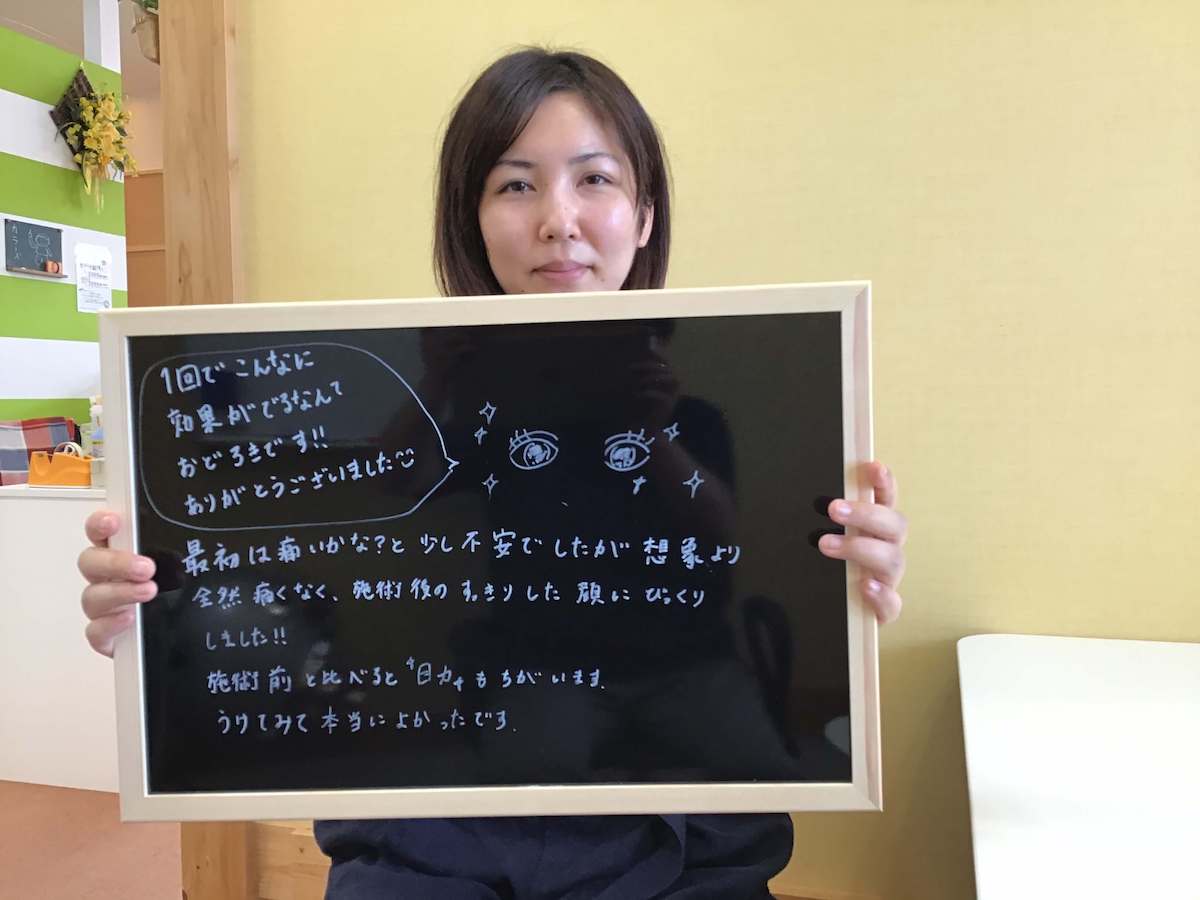 カラーズ
1回でこんなに
効果がでるなんて
おどろきです!!
ありがとうございました
最初は痛いかな?と少し不安でしたが想象より
全然痛くなく、施術後のすっきりした顔にびっくり
しました!!
施術前と比べると"目力"もちがいます。
うけてみて本当によかったです。